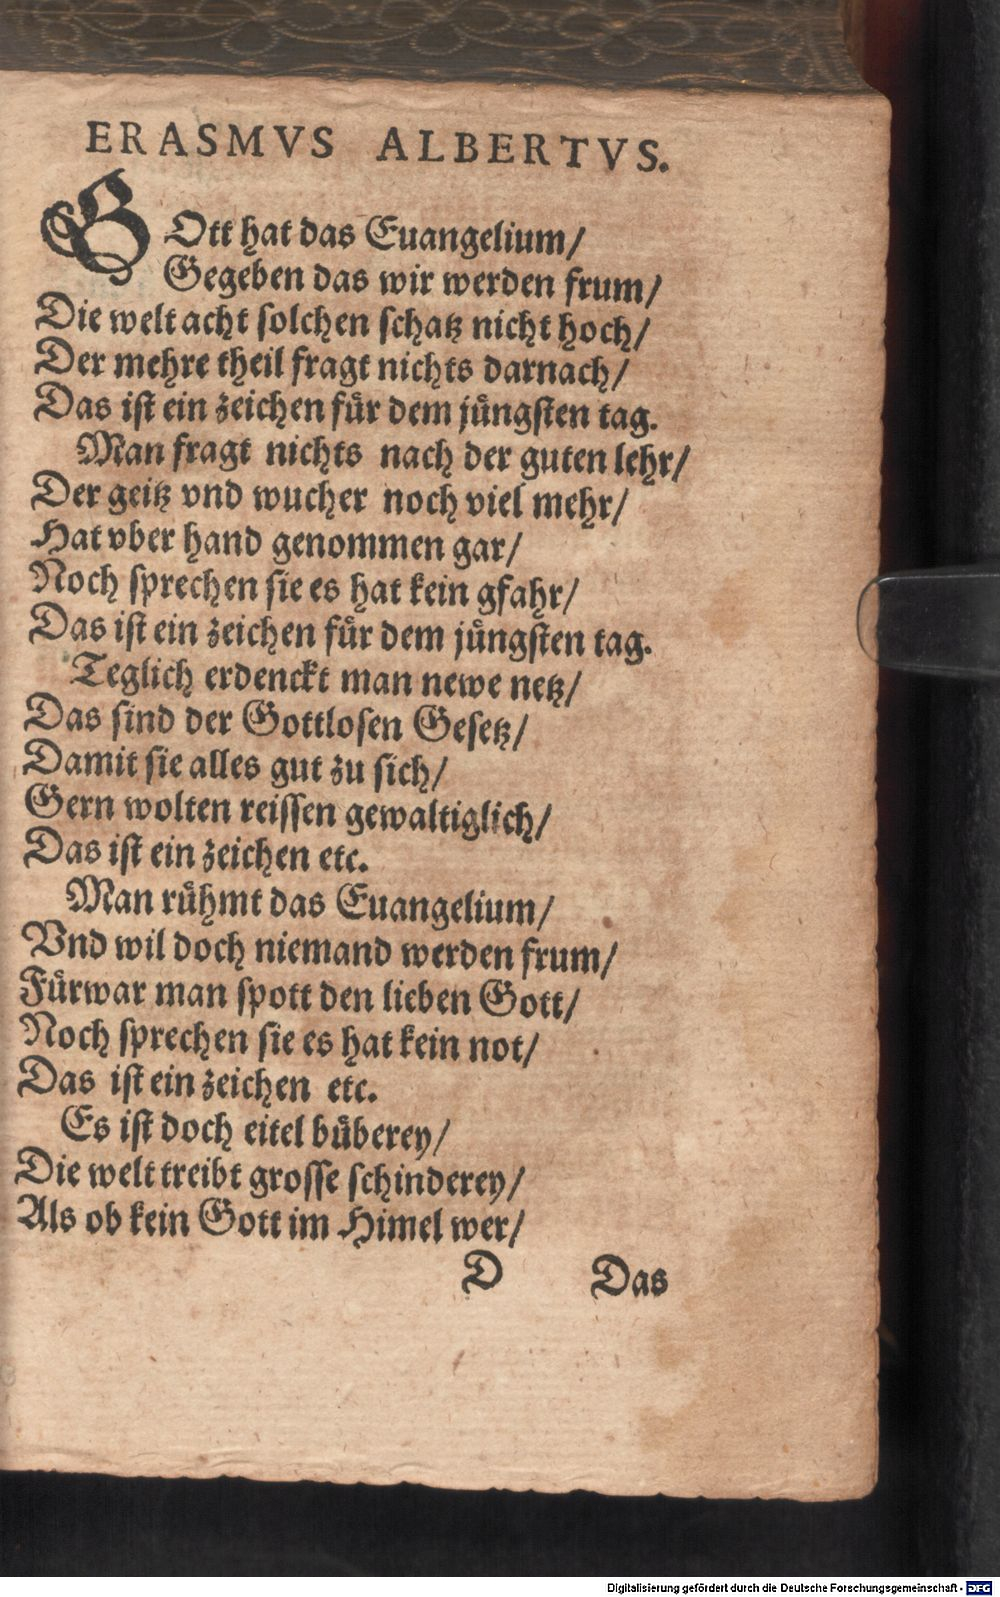 ERASMVS ALBERTVS.
GOtt hat das Euangelium/
Gegeben das wir werden frum/
Die welt acht solchen schatz nicht hoch/
Der mehre theil fragt nichts darnach/
Das ist ein zeichen für dem jüngsten tag.
Man fragt nichts nach der guten lehr/
Der geitz vnd wucher noch viel mehr/
Hat vber hand genommen gar/
Noch sprechen sie es hat kein gfahr/
Das ist ein zeichen für dem jüngsten tag.
Teglich erdenckt man newe netz/
Das sind der Gottlosen Gesetz/
Damit sie alles gut zu sich/
Gern wolten reissen gewaltiglich/
Das ist ein zeichen etc.
Man rühmt das Euangelium/
Vnd wil doch niemand werden frum/
Fürwar man spott den lieben Gott/
Noch sprechen sie es hat kein not/
Das ist ein zeichen etc.
Es ist doch eitel büberey/
Die welt treibt grosse schinderey/
Als ob kein Gott im Himel wer/
D Das
Digitalisierung gefördert durch die Deutsche Forschungsgemeinschaft - DFG